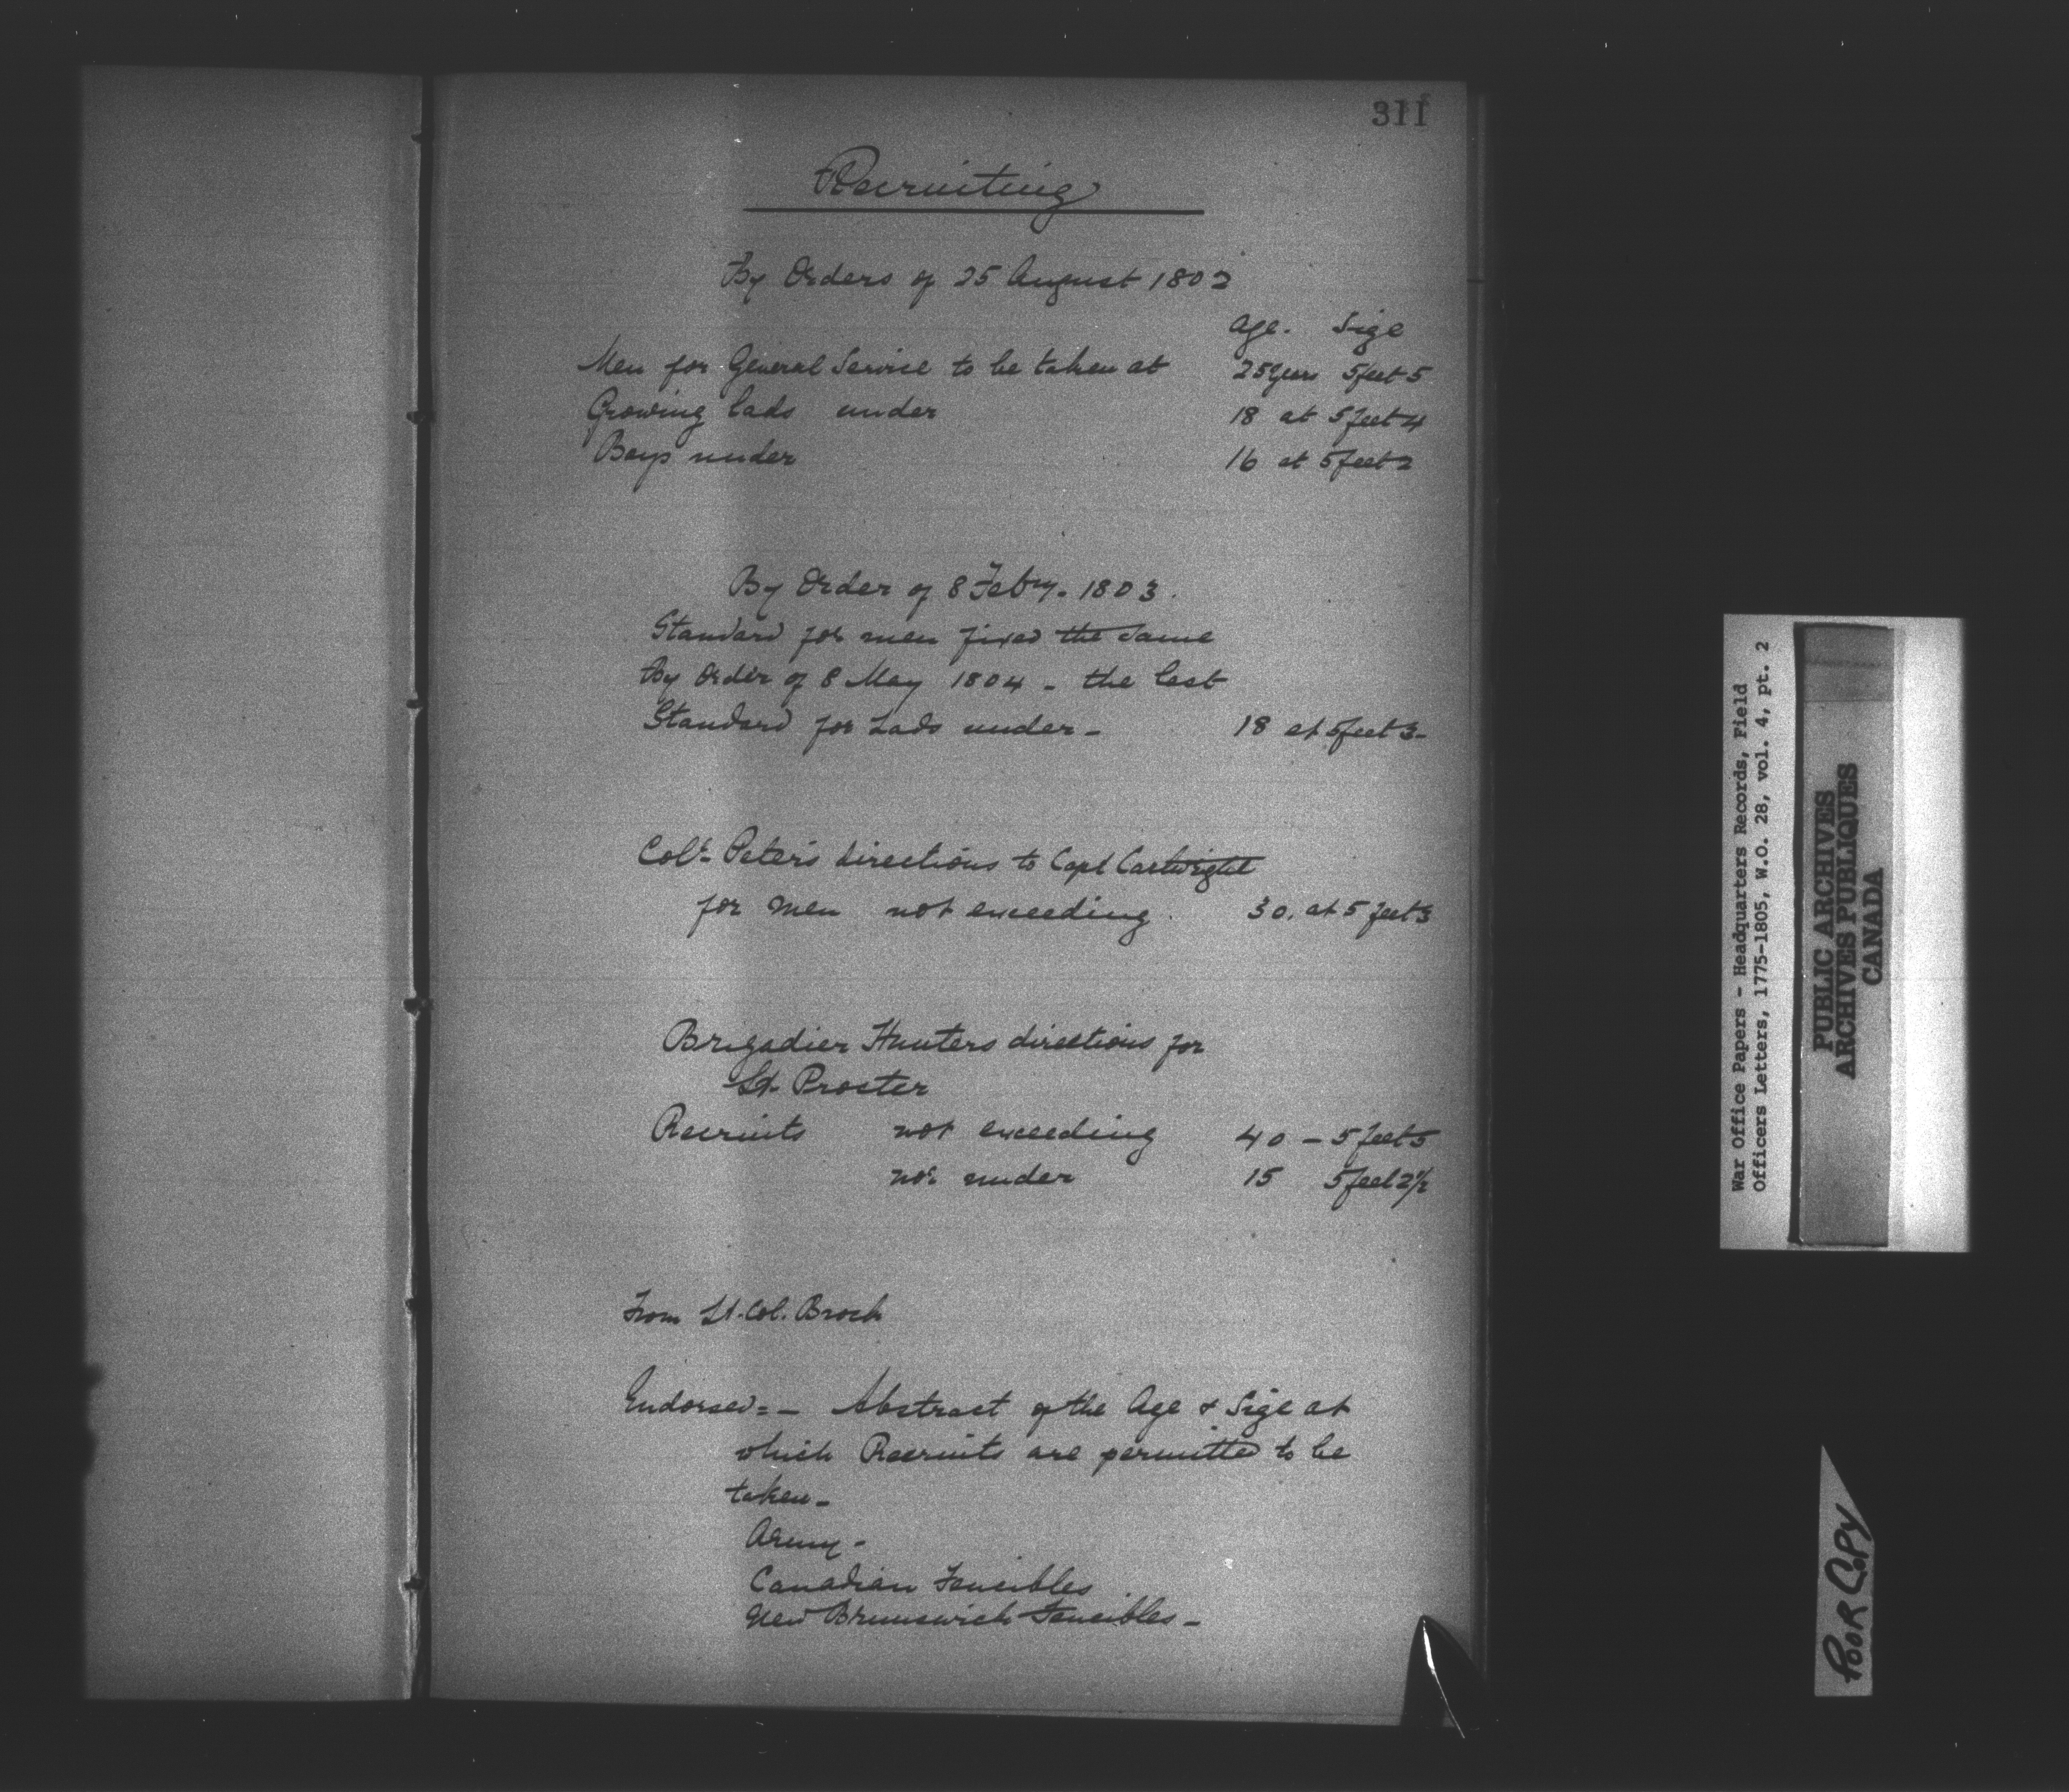 311
Recruiting
By Orders of 25 August 1802
Age. Size
Men for General Service to be taken at 25 Years 5 feet 5
Growing lads under 18 at 5 feet 4
Boys under 16 at 5 feet 2
By Order of 8 Febry. 1803.
Standard for men fixed the same
By Order of 8 May 1804 - the last
Standard for Lads under - 18 at 5 feet 3 -
Colr. Peters directions to Capt Cartwright
for men not exceeding. 30. at 5 feet 3
Brigadier Hunters directions for
Lt. Procter
Recruits not exceeding 40 - 5 feet 5
not under 15 5 feet 2½
From Lt. Col. Brock
Endorsed = - Abstract of the Age & Size at
which Recruits are permitted to be
taken -
Army -
Canadian Fencibles
New Brunswick Fencibles -
War Office Papers - Headquarters Records, Field
Officers Letters, 1775-1805, W.O. 28, vol. 4, pt. 2
PUBLIC ARCHIVES
ARCHIVES PUBLIQUES
CANADA
POOR COPY